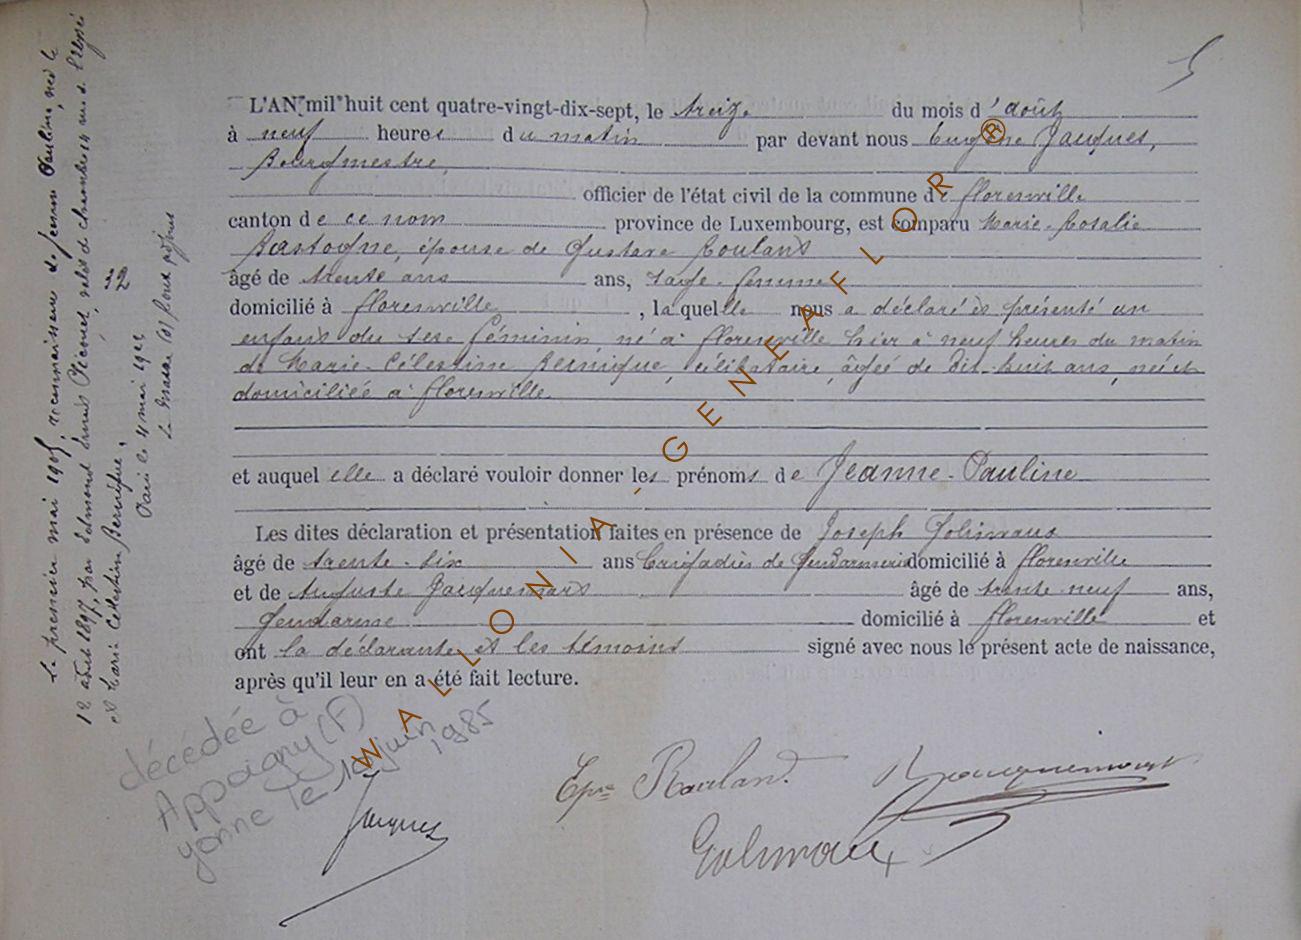 5
L'AN mil huit cent quatre-vingt-dix-sept, le treize du mois d'août
à neuf heures du matin par devant nous Eugène Jacques,
Bourgmestre,
officier de l'état civil de la commune de Florenville
canton de ce nom province de Luxembourg, est comparu Marie-Rosalie
Bastogne, épouse de Gustave Roulans
âgé de trente ans ans, sage-femme
domicilié à Florenville, laquelle nous a déclaré et présenté un
enfant du sexe féminin, né à Florenville hier à neuf heures du matin
de Marie-Célestine Bernique, célibataire, âgée de dix-huit ans, née et
domiciliée à Florenville.
et auquel elle a déclaré vouloir donner les prénoms de Jeanne-Pauline
Les dites déclaration et présentation faites en présence de Joseph
âgé de trente-six ans Brigadier de Gendarmerie domicilié à Florenville
et de Auguste Jacquemart âgé de trente neuf ans,
Gendarme domicilié à Florenville et
ont la déclarante et les témoins signé avec nous le présent acte de naissance,
après qu'il leur en a été fait lecture.
Le premier mai 1905, reconnaissance de Jeanne Pauline, née le
12 août 1897, par Edmond Louis
et Marie Célestine Bernique.
Paris le 4 mai 1922
32
décédée à
Appoigny (F)
Yonne le juin
1985
Jacques
Epse Rouland.
Jacquemart
WALLONIA - GENEAFLOR ®